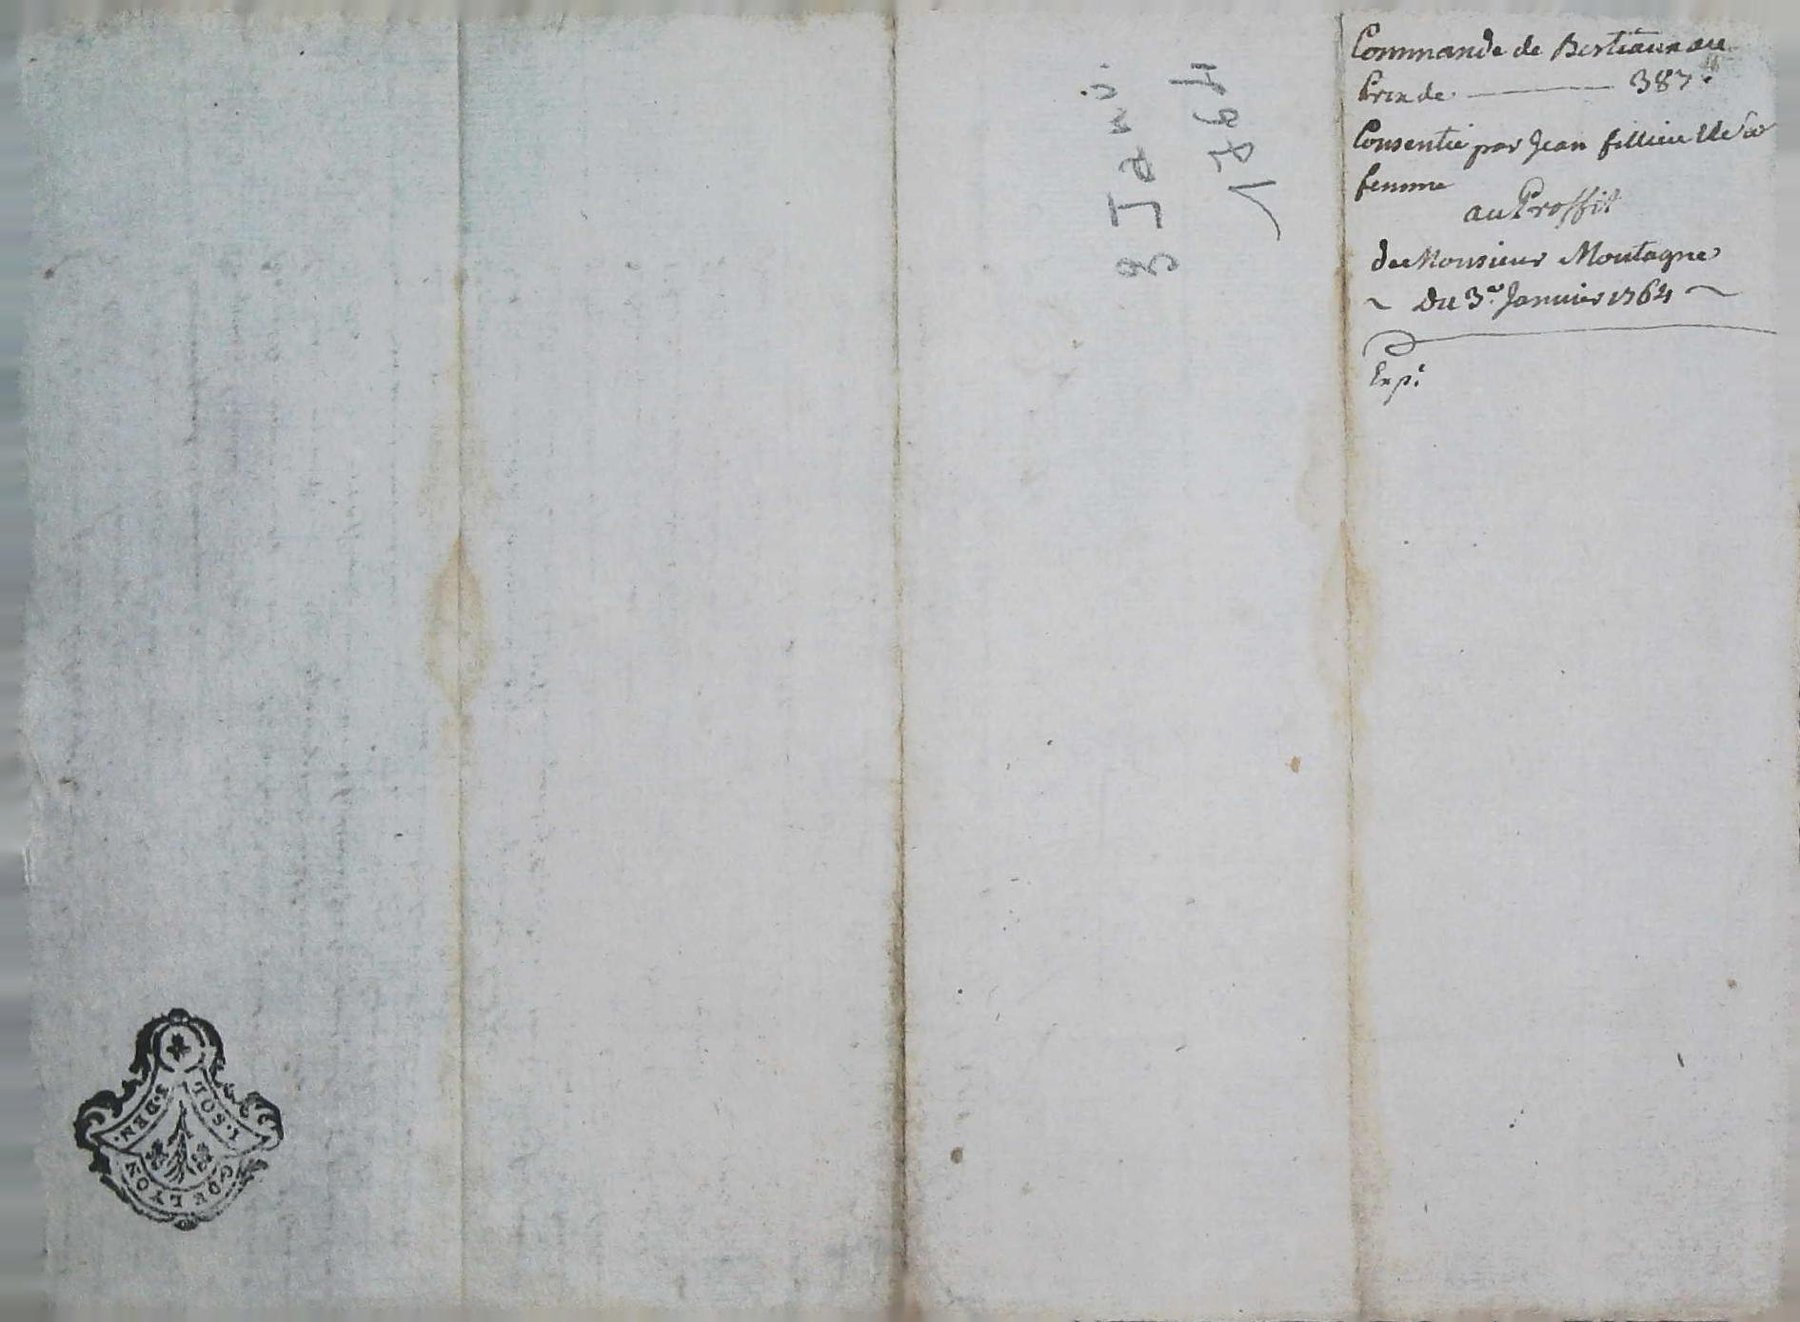 Commande de Bestiaux au
Prix de 387 ᵗᵗ
Consentie par Jean fillieu & Sa
femme
au Proffit
de Monsieur Montagne
~ Du 3.ᵉ Janvier 1764 ~
Exp.ᵉ
3 Janv.
1764
1.SOL
1.DEN.
G.DE LYON